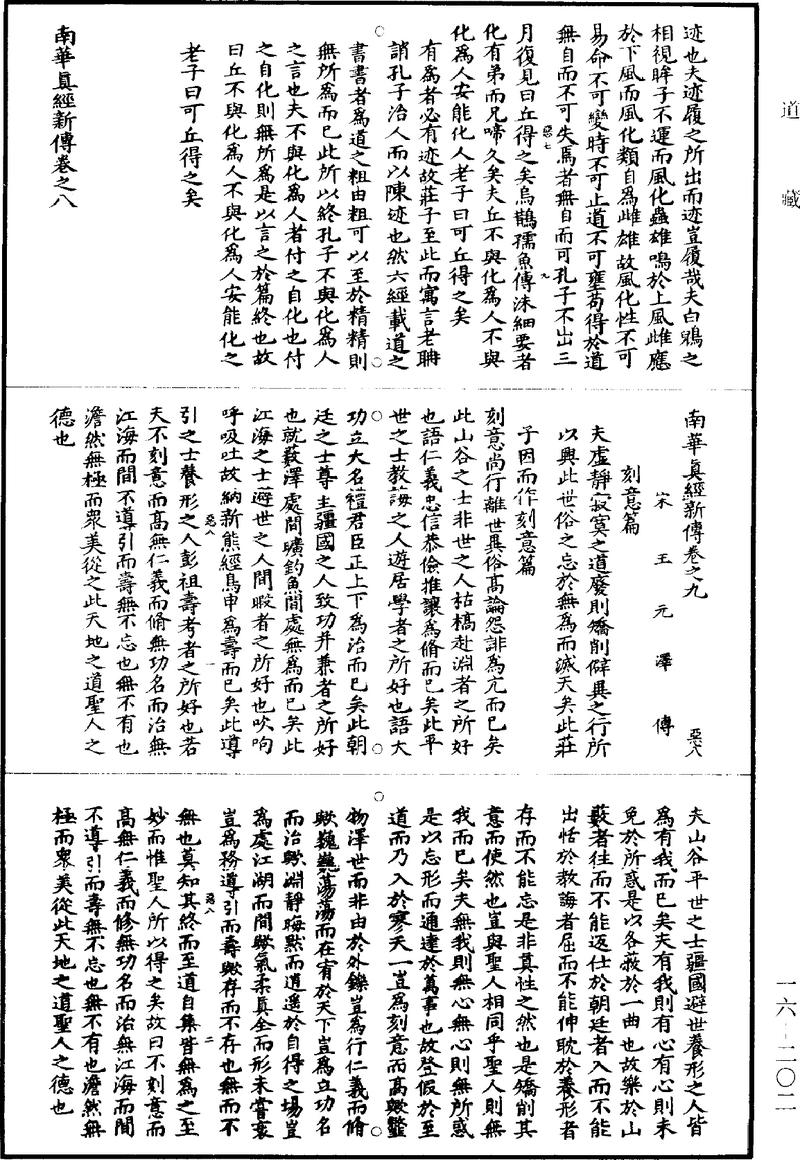 道藏
迹也夫迹履之所出而迹豈履哉夫白鶂之
相視眸子不運而風化蟲雄鳴於上風雌應
於下風而風化類自為雌雄故風化性不可
易命不可變時不可止道不可壅苟得於道
無自而不可失焉者無自而可孔子不出三
月復見曰丘得之矣烏鵲孺魚傅沫細要者
化有弟而兄啼久矣夫丘不與化為人不與
化為人安能化人老子曰可丘得之矣
有為者必有迹故莊子至此而寓言老聃
誚孔子治人而以陳迹也然六經載道之
書書者為道之粗由粗可以至於精精則
無所為而已此所以終孔子不與化為人
之言也夫不與化為人者付之自化也付
之自化則無所為是以言之於篇終也故
曰丘不與化為人不與化為人安能化之
老子曰可丘得之矣
南華真經新傳卷之八
惡七
九
南華真經新傳卷之九
惡八
宋王元澤傳
刻意篇
夫虛靜寂寞之道廢則矯削僻異之行所
以興此世俗之忘於無為而滅天矣此莊
子因而作刻意篇
刻意尚行離世異俗高論怨誹為亢而已矣
此山谷之士非世之人枯槁赴淵者之所好
也語仁義忠信恭儉推讓為脩而已矣此平
世之士教誨之人遊居學者之所好也語大
功立大名禮君臣正上下為治而已矣此朝
廷之士尊主彊國之人致功并兼者之所好
也就藪澤處閒曠釣魚閒處無為而已矣此
江海之士避世之人閒暇者之所好也吹呴
呼吸吐故納新熊經鳥申為壽而已矣此導
引之士養形之人彭祖壽考者之所好也若
夫不刻意而高無仁義而脩無功名而治無
江海而閒不導引而壽無不忘也無不有也
澹然無極而衆美從之此天地之道聖人之
德也
惡八
一
夫山谷平世之士彊國避世養形之人皆
為有我而已矣夫有我則有心有心則未
免於所惑是以各蔽於一曲也故樂於山
藪者往而不能返仕於朝廷者入而不能
出恬於教誨者屈而不能伸耽於養形者
存而不能忘是非真性之然也是矯削其
意而使然也豈與聖人相同乎聖人則無
我而已矣夫無我則無心無心則無所惑
是以忘形而通達於萬事也故登假於至
道而乃入於寥天一豈為刻意而高歟鼇
物澤世而非由於外鑠豈為行仁義而脩
歟巍巍蕩蕩而在宥於天下豈為立功名
而治歟淵靜晦默而逍遥於自得之場豈
為處江湖而閒歟氣柔真全而形未嘗衰
豈為務導引而壽歟存而不存也無而不
無也莫知其終而至道自集皆無為之至
妙而惟聖人所以得之矣故曰不刻意而
高無仁義而修無功名而治無江海而閒
不導引而壽無不忘也無不有也澹然無
極而衆美從此天地之道聖人之德也
惡八
二
一六—二〇二